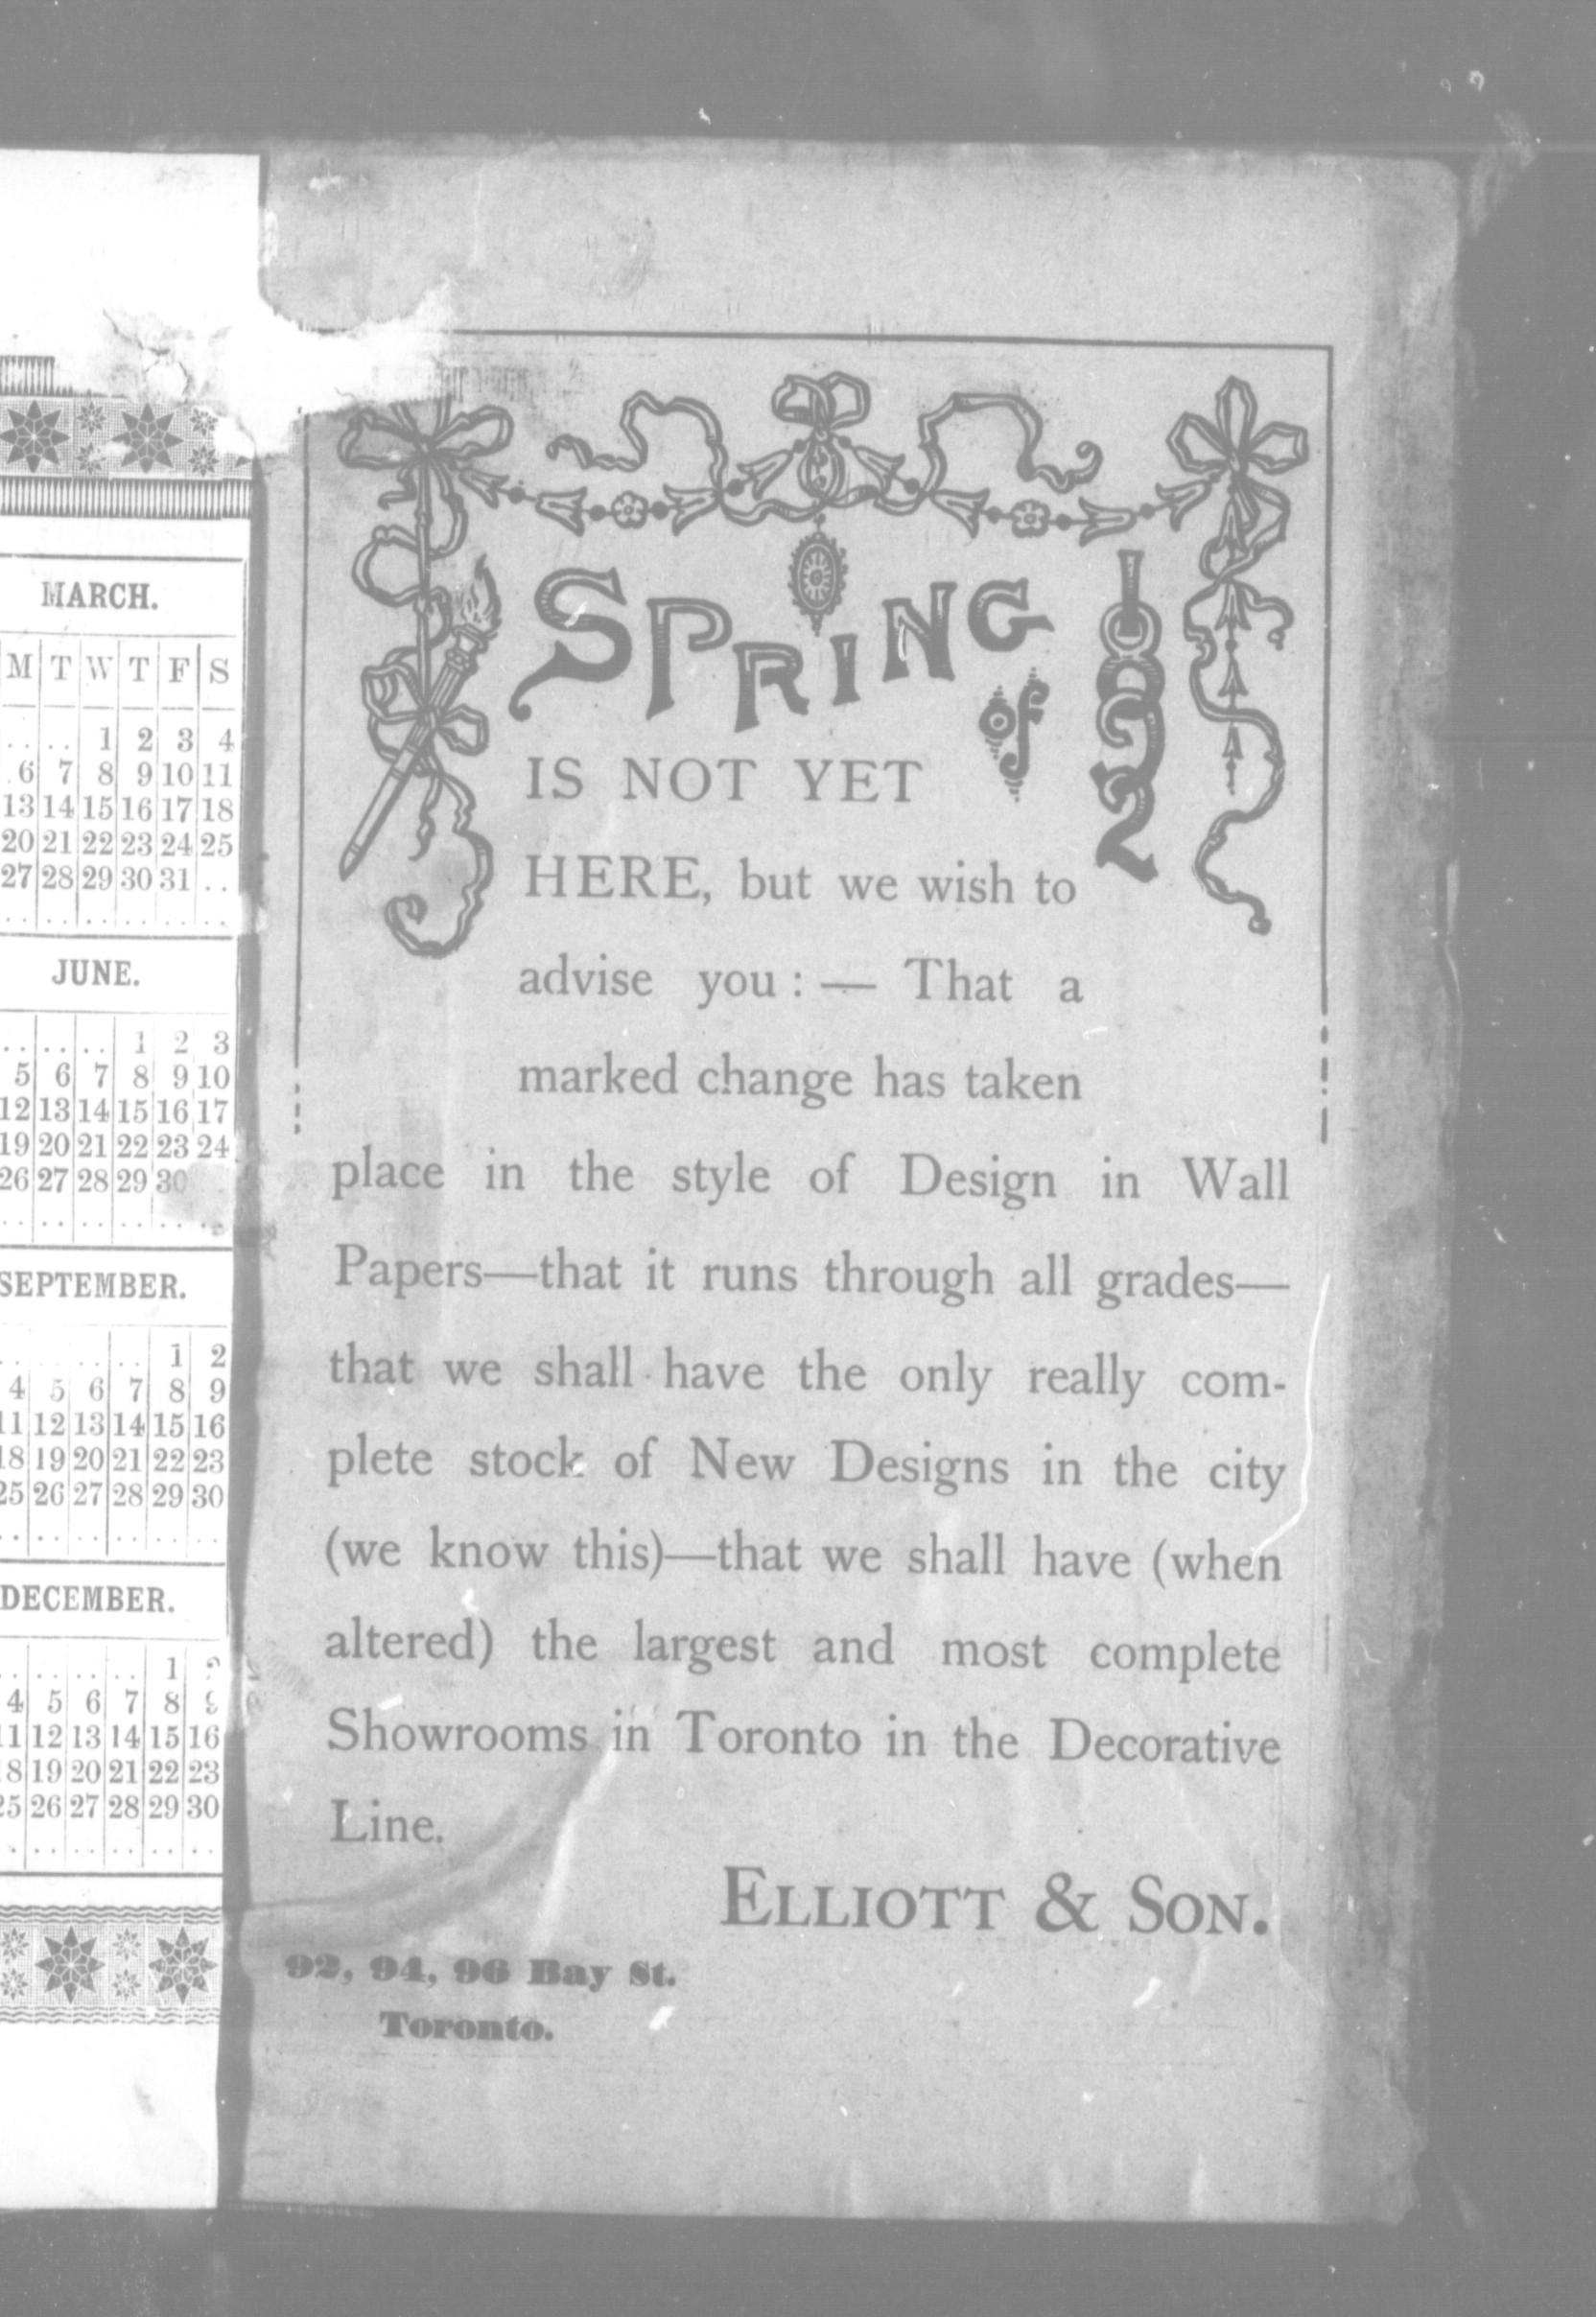 MARCH.
M T W T F S
.. .. 1 2 3 4
6 7 8 9 10 11
13 14 15 16 17 18
20 21 22 23 24 25
27 28 29 30 31 ..
.. .. .. .. .. ..
JUNE.
.. .. .. 1 2 3
5 6 7 8 9 10
12 13 14 15 16 17
19 20 21 22 23 24
26 27 28 29 30
SEPTEMBER.
.. .. .. .. 1 2
4 5 6 7 8 9
11 12 13 14 15 16
18 19 20 21 22 23
25 26 27 28 29 30
.. .. .. .. .. ..
DECEMBER.
.. .. .. .. 1
4 5 6 7 8
11 12 13 14 15 16
18 19 20 21 22 23
25 26 27 28 29 30
.. .. .. .. .. ..
SPRING of 1892
IS NOT YET
HERE, but we wish to
advise you :— That a
marked change has taken
place in the style of Design in Wall
Papers—that it runs through all grades—
that we shall have the only really com-
plete stock of New Designs in the city
(we know this)—that we shall have (when
altered) the largest and most complete
Showrooms in Toronto in the Decorative
Line.
ELLIOTT & SON.
92, 94, 96 Bay St.
Toronto.